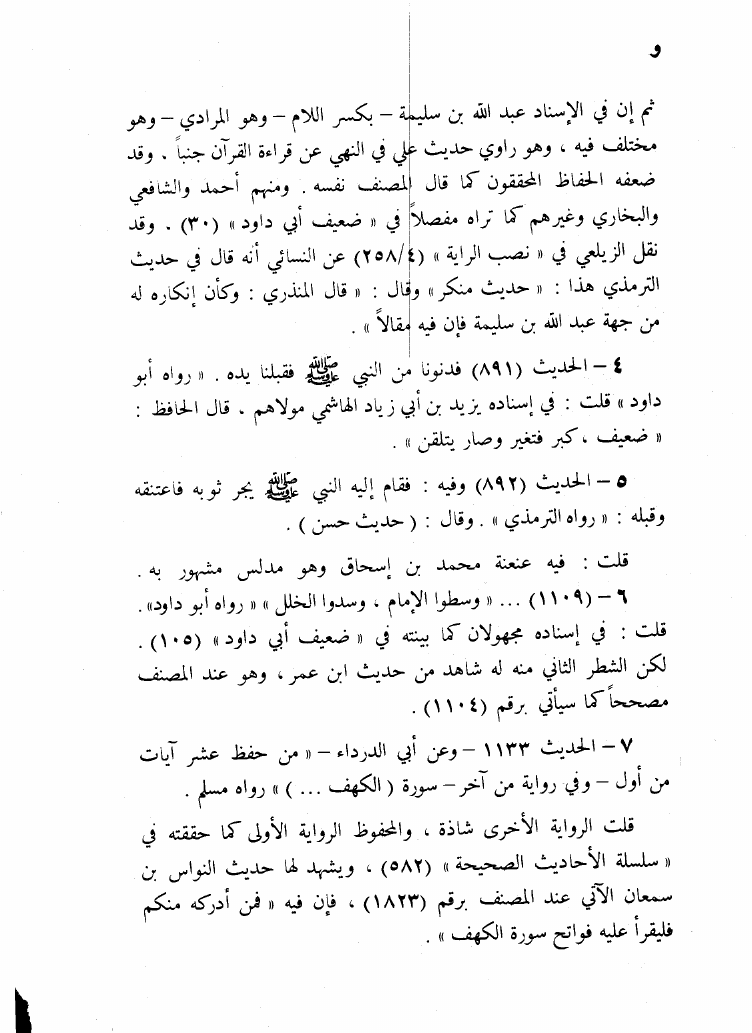 و
ثم إن في الإسناد عبد الله بن سليمة – بكسر اللام – وهو المرادي – وهو
مختلف فيه ، وهو راوي حديث علي في النهي عن قراءة القرآن جنباً . وقد
ضعفه الحفاظ المحققون كما قال المصنف نفسه . ومنهم أحمد والشافعي
والبخاري وغيرهم كما تراه مفصلاً في « ضعيف أبي داود » (٣٠) . وقد
نقل الزيلعي في « نصب الراية » (٢٥٨/٤) عن النسائي أنه قال في حديث
الترمذي هذا : « حديث منكر » وقال : « قال المنذري : وكأن إنكاره له
من جهة عبد الله بن سليمة فإن فيه مقالاً » .
٤ – الحديث (٨٩١) فدنونا من النبي ﷺ فقبلنا يده . « رواه أبو
داود » قلت : في إسناده يزيد بن أبي زياد الهاشمي مولاهم . قال الحافظ :
« ضعيف ، كبر فتغير وصار يتلقن » .
٥ – الحديث (٨٩٢) وفيه : فقام إليه النبي ﷺ يجر ثوبه فاعتنقه
وقبله : « رواه الترمذي » . وقال : ( حديث حسن ) .
قلت : فيه عنعنة محمد بن إسحاق وهو مدلس مشهور به .
٦ – (١١٠٩) ... « وسطوا الإمام ، وسدوا الخلل » « رواه أبو داود» .
قلت : في إسناده مجهولان كما بينته في « ضعيف أبي داود » (١٠٥) .
لكن الشطر الثاني منه له شاهد من حديث ابن عمر ، وهو عند المصنف
مصححاً كما سيأتي برقم (١١٠٤) .
٧ – الحديث ١١٣٣ – وعن أبي الدرداء – « من حفظ عشر آيات
من أول – وفي رواية من آخر – سورة ( الكهف ... ) » رواه مسلم .
قلت الرواية الأخرى شاذة ، والمحفوظ الرواية الأولى كما حققته في
« سلسلة الأحاديث الصحيحة » (٥٨٢) ، ويشهد لها حديث النواس بن
سمعان الآتي عند المصنف برقم (١٨٢٣) ، فإن فيه « فمن أدركه منكم
فليقرأ عليه فواتح سورة الكهف » .